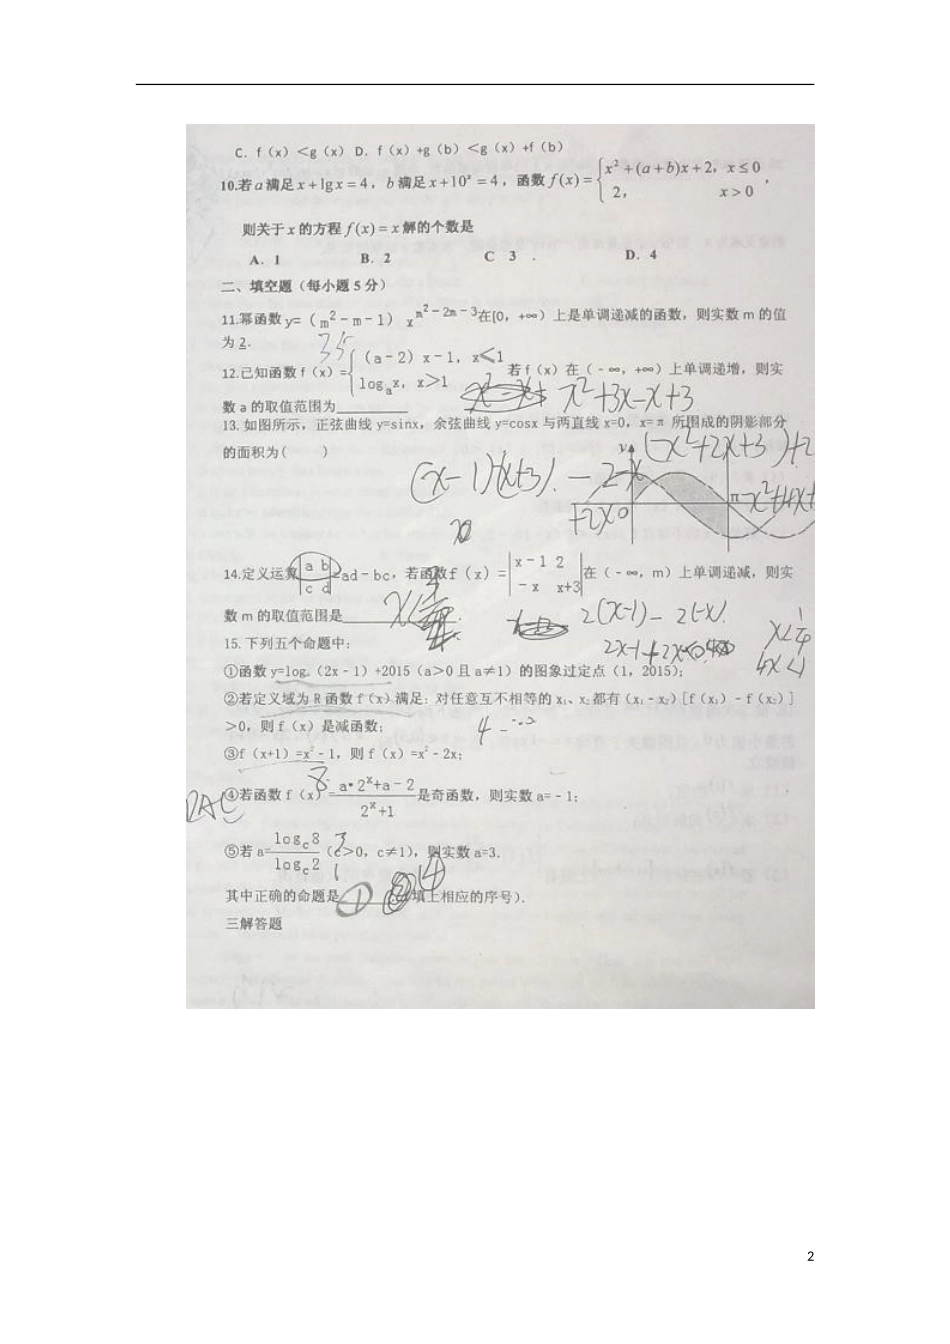 C. f（x）＜g（x）D. f（x）+g（b）＜g（x）+f（b）
10.若a满足x+lgx=4，b满足x+10ˣ=4，函数f(x)={x²+(a+b)x+2，x≤0
2，x>0，
则关于x的方程f(x)=x解的个数是
A. 1 B. 2 C 3 . D. 4
二、填空题（每小题5分）
11.幂函数y=（m²-m-1）x^(m²-2m-3)在[0，+∞）上是单调递减的函数，则实数m的值
为2.
35
12.已知函数f（x）={（a-2）x-1，x≤1
log_a x，x>1
若f（x）在（-∞，+∞）上单调递增，则实
数a的取值范围为
x²+3x-x+3
13.如图所示，正弦曲线y=sinx，余弦曲线y=cosx与两直线x=0，x=π所围成的阴影部分
的面积为(　　)
(x-1)(x+3)
+2x
y
O
π
14.定义运算|a b
c d|=ad-bc，若函数f（x）=|x-1 2
-x x+3|在（-∞，m）上单调递减，则实
数m的取值范围是
2(x-1)-2(-x)
15.下列五个命题中：
4x<1
①函数y=logₐ（2x-1）+2015（a>0且a≠1）的图象过定点（1，2015）；
②若定义域为R函数f（x）满足：对任意互不相等的x₁、x₂都有（x₁-x₂）[f（x₁）-f（x₂）]
>0，则f（x）是减函数；
③f（x+1）=x²-1，则f（x）=x²-2x；
④若函数f（x）=a•2ˣ+a-2
2ˣ+1
是奇函数，则实数a=-1；
⑤若a=log_c8
log_c2
（c>0，c≠1），则实数a=3.
其中正确的命题是①④填上相应的序号）.
三解答题
2